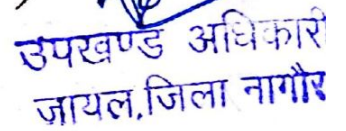 उपखण्ड अधिकारी
जायल,जिला नागौर